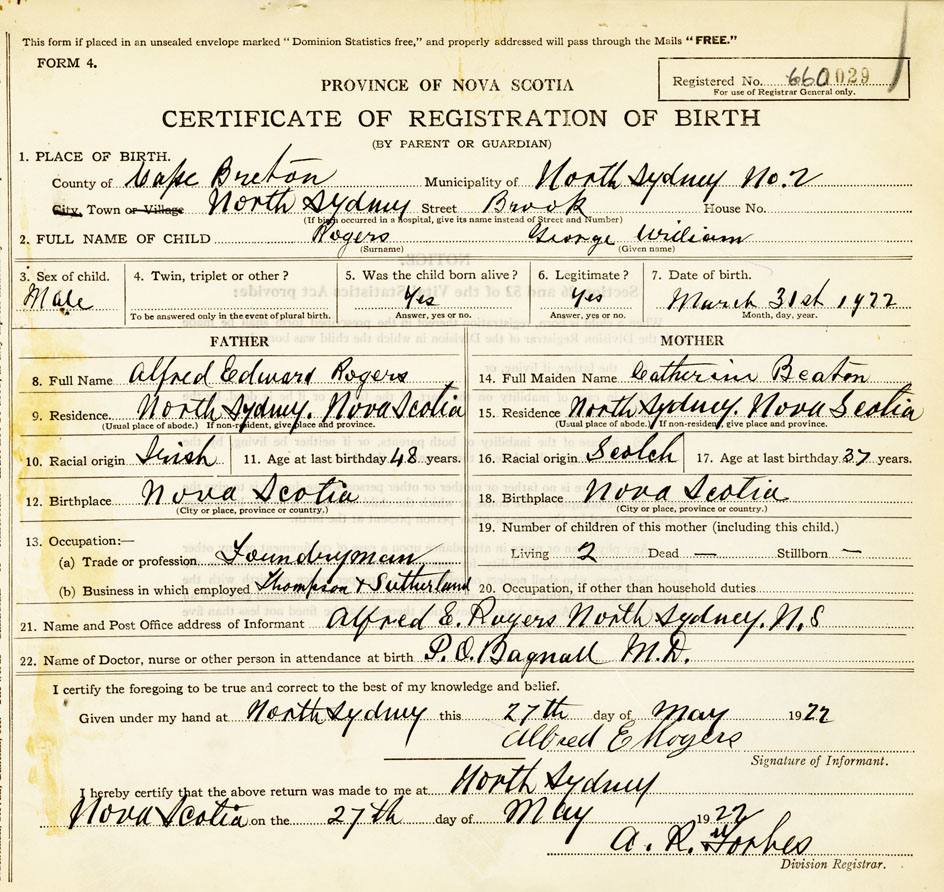 This form if placed in an unsealed envelope marked "Dominion Statistics free," and properly addressed will pass through the Mails "FREE."
FORM 4.
Registered No. 660 029
For use of Registrar General only.
PROVINCE OF NOVA SCOTIA
CERTIFICATE OF REGISTRATION OF BIRTH
(BY PARENT OR GUARDIAN)
1. PLACE OF BIRTH.
County of Cape Breton Municipality of North Sydney No. 2
City, Town or Village North Sydney Street Brook House No.
(If birth occurred in a hospital, give its name instead of Street and Number)
2. FULL NAME OF CHILD Rogers George William
(Surname) (Given name)
3. Sex of child. 4. Twin, triplet or other? 5. Was the child born alive? 6. Legitimate? 7. Date of birth.
Male Yes Yes March 31st 1922
To be answered only in the event of plural birth. Answer, yes or no. Answer, yes or no. Month, day, year.
FATHER MOTHER
8. Full Name Alfred Edward Rogers 14. Full Maiden Name Catherine Beaton
9. Residence. North Sydney. Nova Scotia 15. Residence North Sydney. Nova Scotia
(Usual place of abode.) If non-resident, give place and province. (Usual place of abode.) If non-resident, give place and province.
10. Racial origin Irish 11. Age at last birthday 48 years. 16. Racial origin Scotch 17. Age at last birthday 37 years.
12. Birthplace Nova Scotia 18. Birthplace Nova Scotia
(City or place, province or country.) (City or place, province or country.)
13. Occupation:— 19. Number of children of this mother (including this child.)
(a) Trade or profession Foundryman Living 2 Dead — Stillborn —
(b) Business in which employed Thompson & Sutherland 20. Occupation, if other than household duties
21. Name and Post Office address of Informant Alfred E. Rogers North Sydney. N.S
22. Name of Doctor, nurse or other person in attendance at birth P. O. Bagnall M.D.
I certify the foregoing to be true and correct to the best of my knowledge and belief.
Given under my hand at North Sydney this 27th day of May 1922
Alfred E Rogers
Signature of Informant.
I hereby certify that the above return was made to me at North Sydney
Nova Scotia on the 27th day of May 1922
A. R. Forbes
Division Registrar.